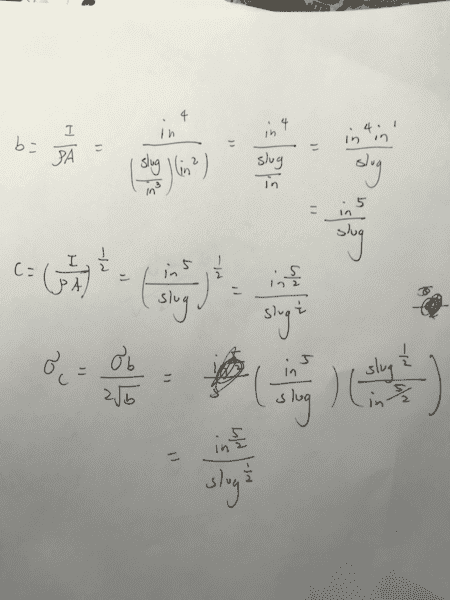 b = I/ρA = in⁴/((slug/in³)(in²)) = in⁴/(slug/in) = in⁴in¹/slug
= in⁵/slug
c = (I/ρA)^(1/2) = (in⁵/slug)^(1/2) = in^(5/2)/slug^(1/2)
σ_c = σ_b/(2√b) = (in⁵/slug)(slug^(1/2)/in^(5/2))
= in^(5/2)/slug^(1/2)